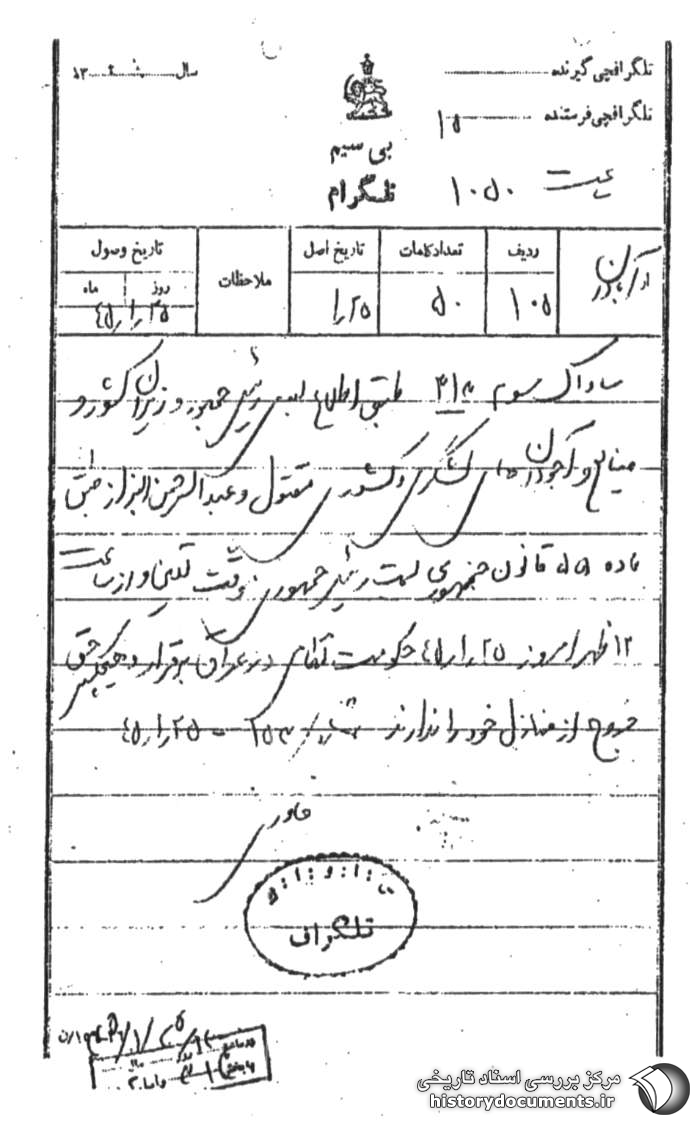 تلگرافچی گیرنده
سال ۱۳
تلگرافچی فرستنده ۱۵
بی سیم
ساعت ۱۰۵۰
تلگرام
از
ردیف
تعداد کلمات
تاریخ اصل
ملاحظات
تاریخ وصول
روز
ماه
۱۰۵
۵۰
۲۵ر۱
ساواک سوم طبق اطلاع رئیس جمهور و وزیران کشور و
صنایع و آجودان لشگری و کشوری مقتول و عبدالرحمن البزاز طبق
ماده ۵۵ قانون جمهوری سمت رئیس جمهوری موقت تعیین و از ساعت
۱۲ ظهر امروز ۲۵ر۱ر۴۵ حکومت نظامی در عراق برقرار و هیچکس حق
خروج از منازل خود را ندارند ۲۵ر۱ر۴۵
خاور
تلگراف
مرکز بررسی اسناد تاریخی
historydocuments.ir